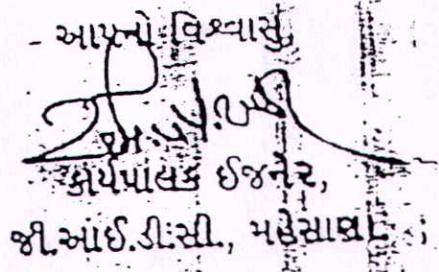 આપનો વિશ્વાસુ,
કાર્યપાલક ઈજનેર,
જી.આઈ.ડી.સી., મહેસાણા.